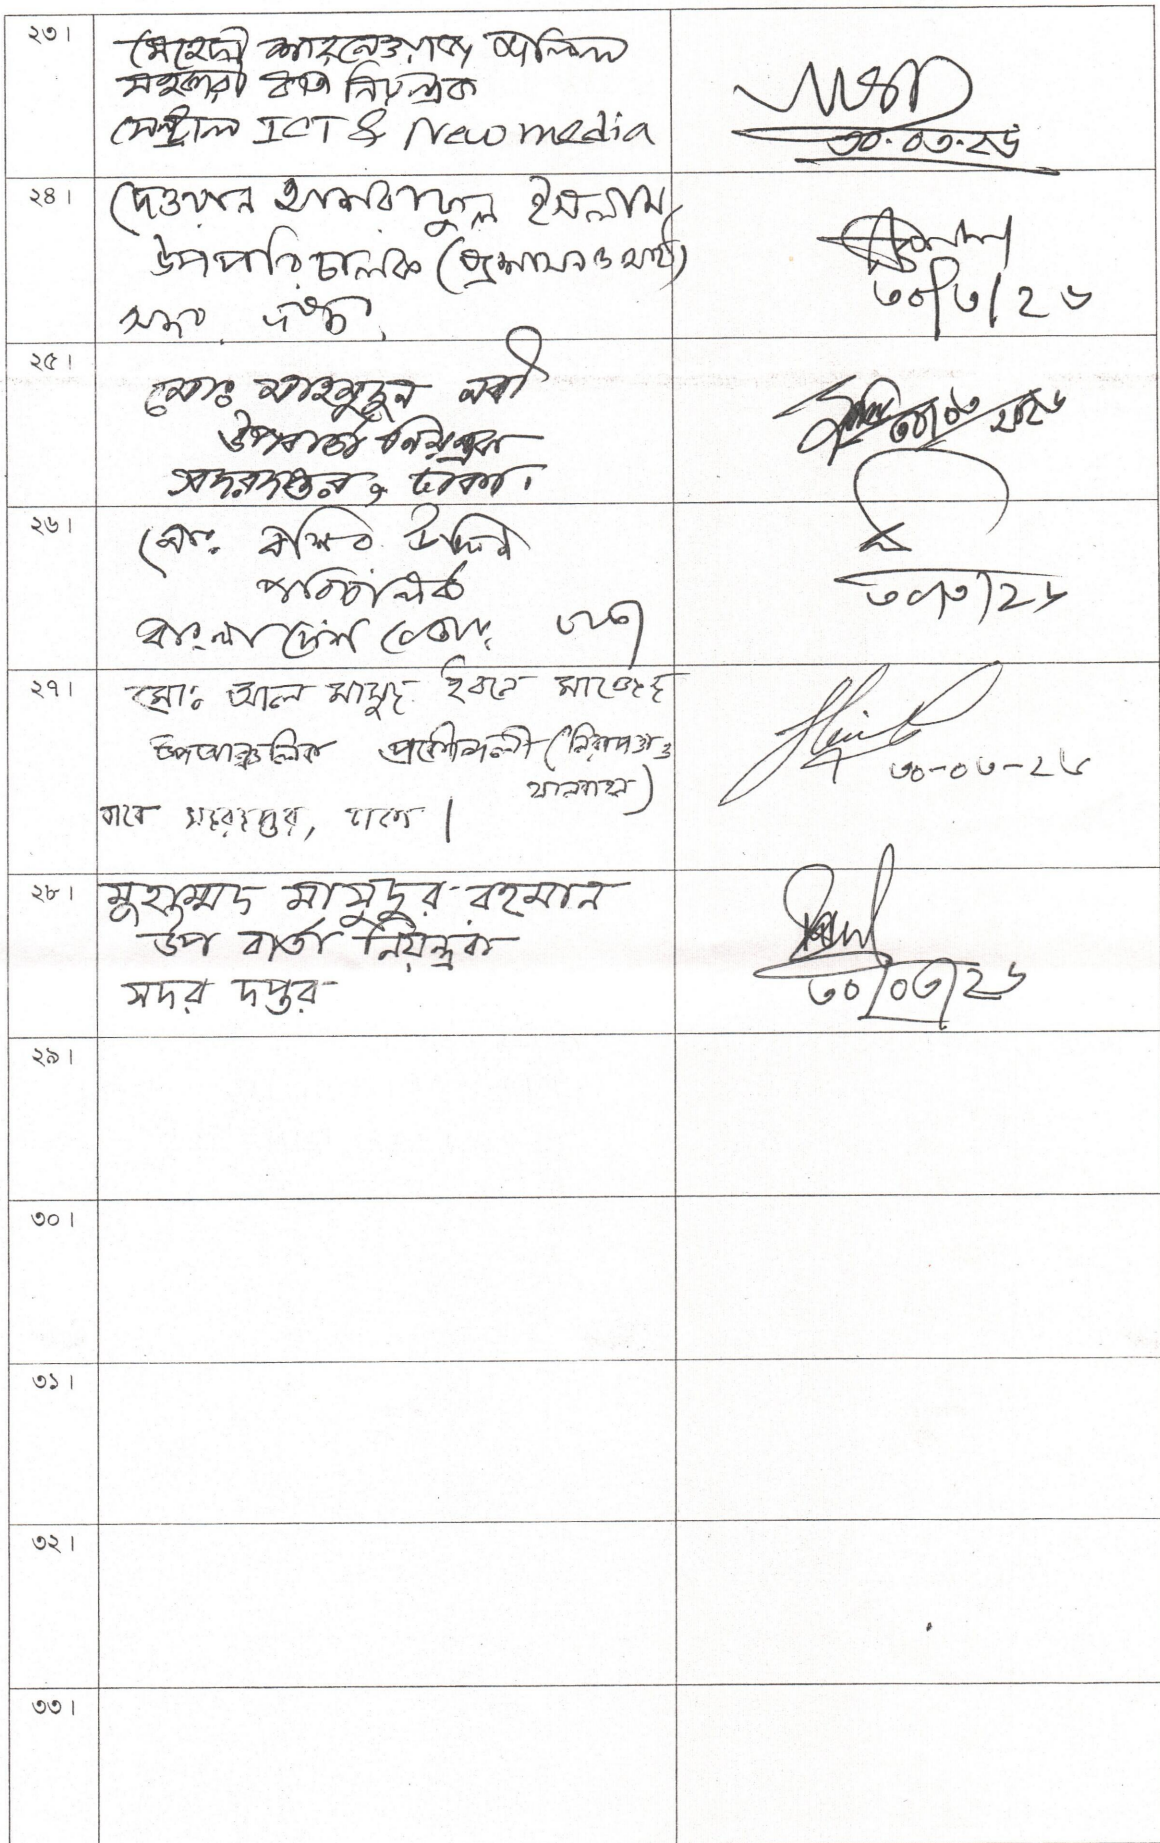 ২৩।
মেহেদী শাহনেওয়াজ জলিল
সহকারী বার্তা নিয়ন্ত্রক
সেন্ট্রাল ICT & New media
৩০.০৩.২৬
২৪।
দেওয়ান আশরাফুল ইসলাম
উপপরিচালক (প্রশাসন ও অর্থ)
৩০/৩/২৬
২৫।
মোঃ মাহমুদুন নবী
উপবার্তা নিয়ন্ত্রক
সদরদপ্তর, ঢাকা।
২৬।
মোঃ বশির উদ্দিন
পরিচালক
বাংলাদেশ বেতার,
৩০/৩/২৬
২৭।
মোঃ আল মামুদ ইবনে
উপআঞ্চলিক প্রকৌশলী (নিরাপত্তা ও
যানবাহন)
সদরদপ্তর, ঢাকা।
৩০-০৩-২৬
২৮।
মুহাম্মদ মাসুদুর রহমান
উপ বার্তা নিয়ন্ত্রক
সদর দপ্তর
৩০/০৩/২৬
২৯।
৩০।
৩১।
৩২।
৩৩।